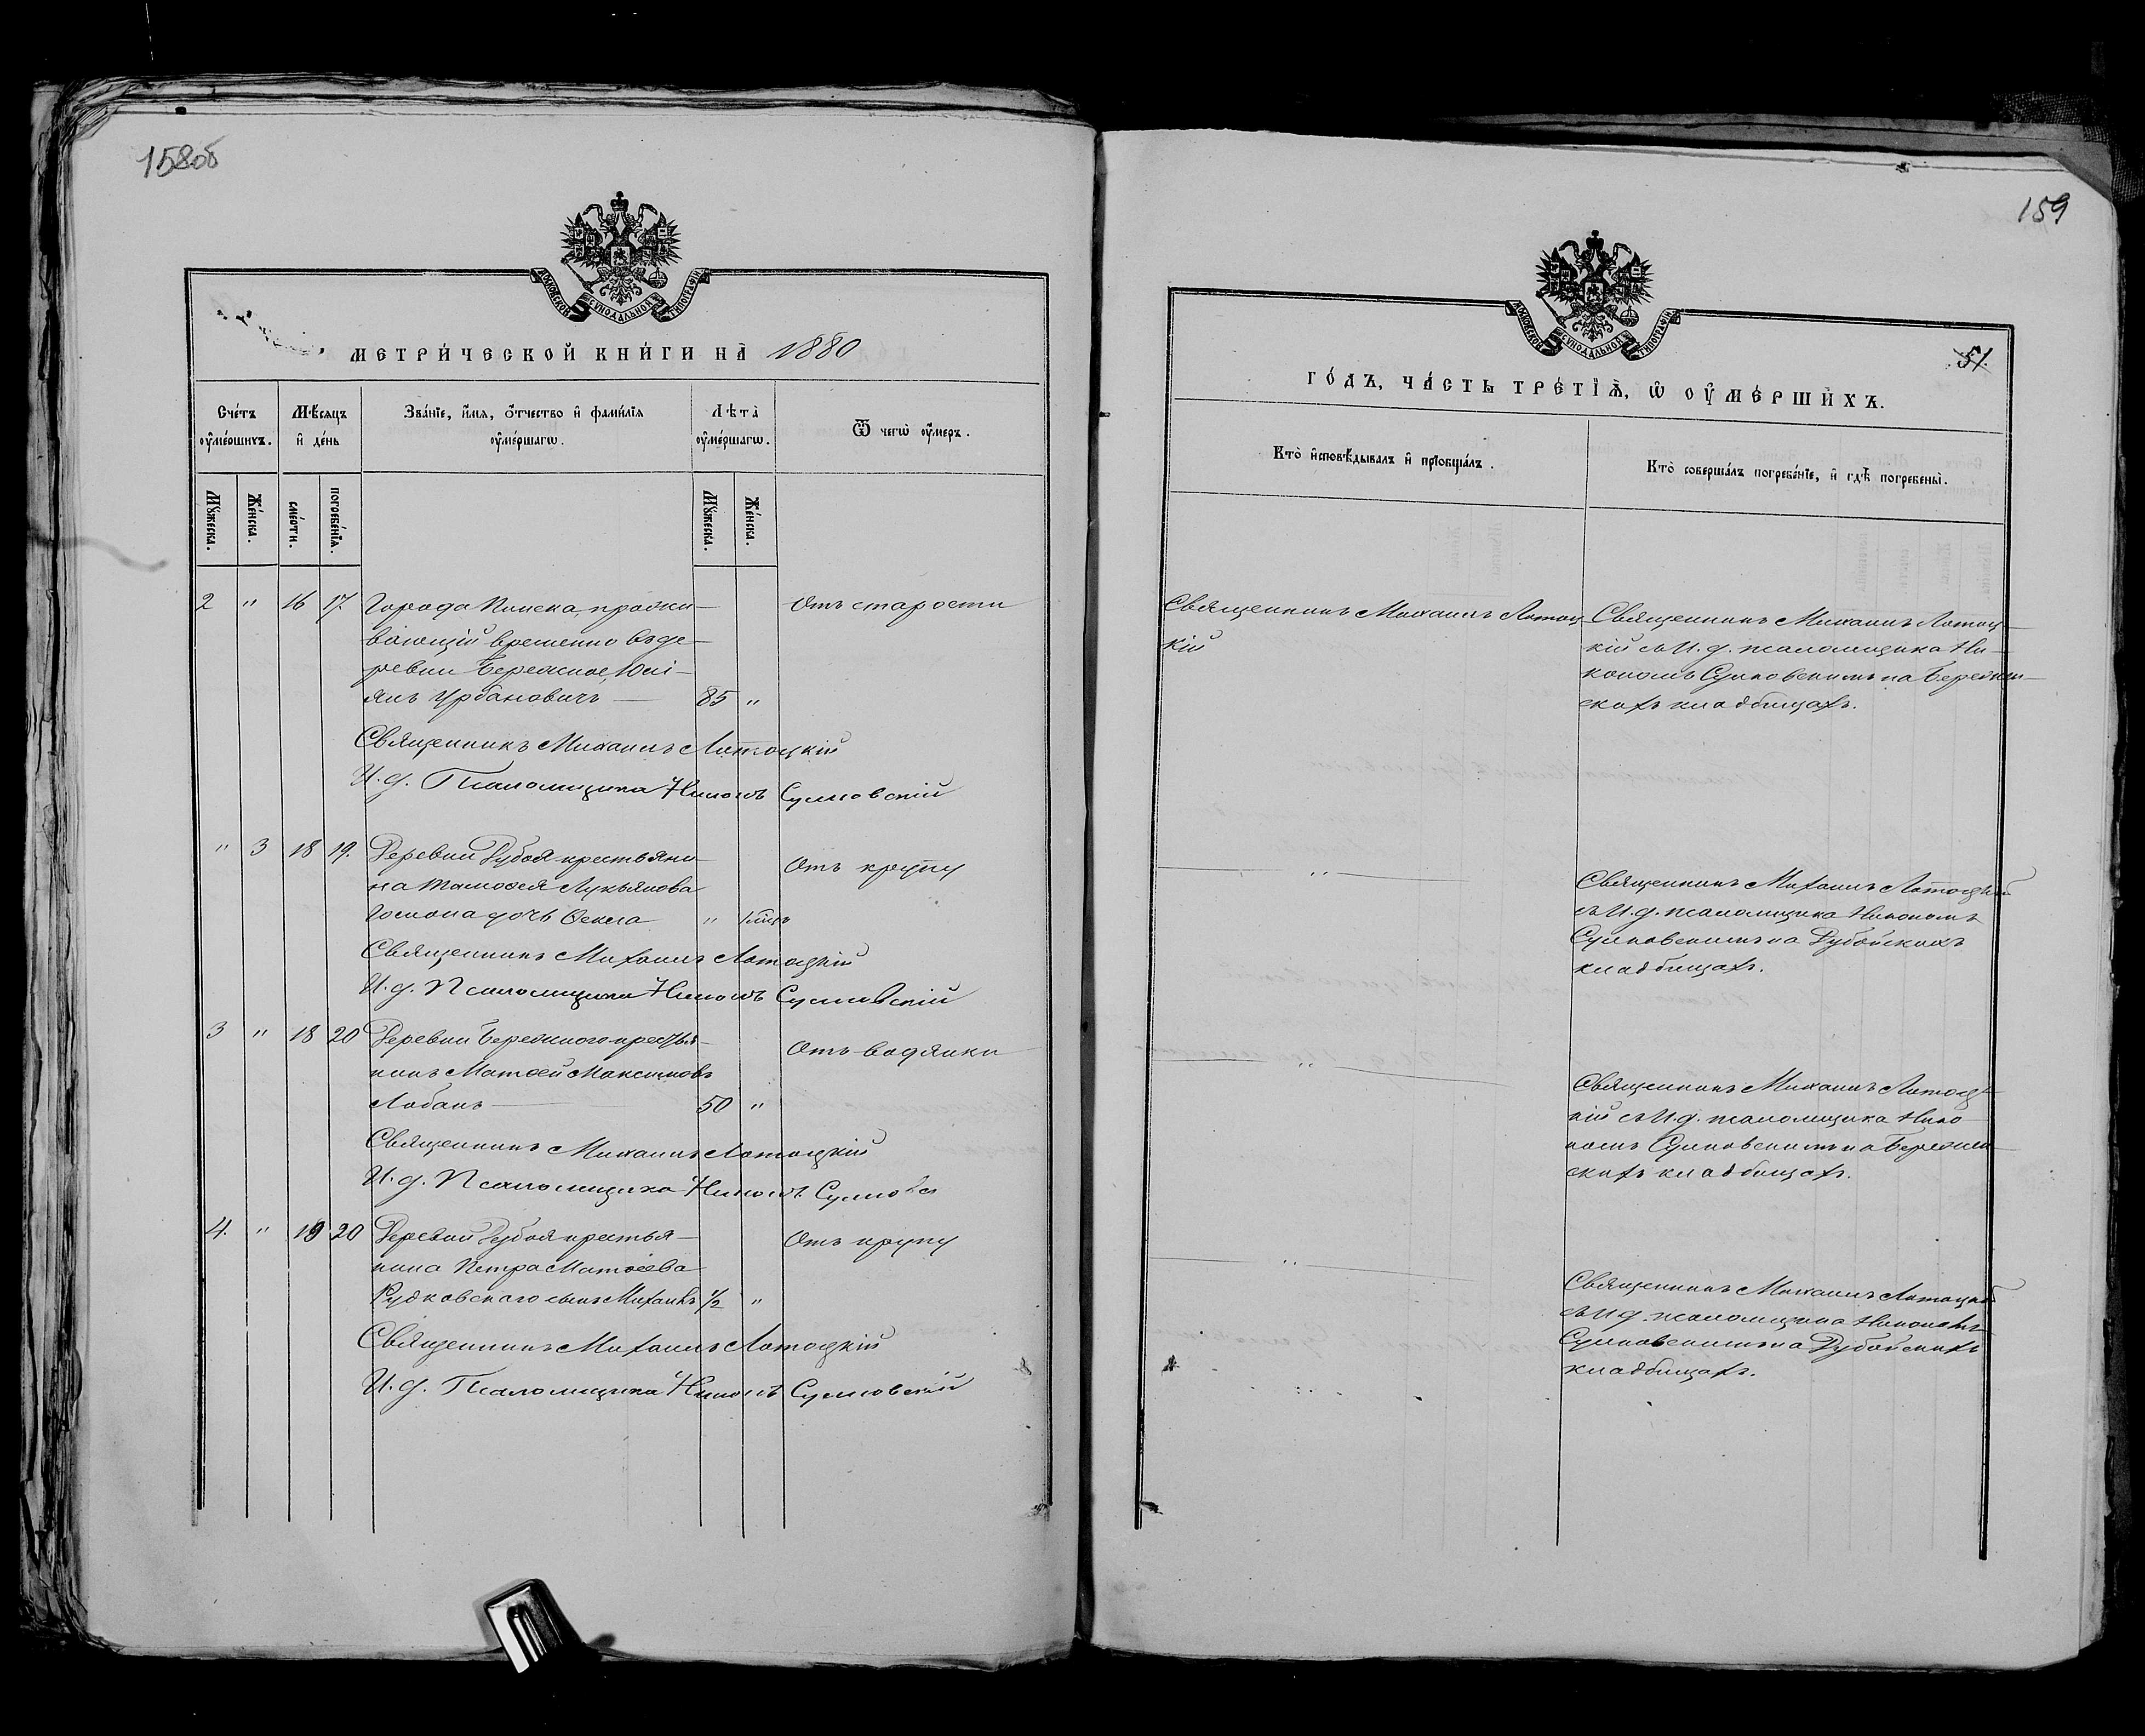 158об
МОСКОВСКОЙ СУНОДАЛЬНОЙ ТИПОГРАФІИ
МЕТРИ́ЧЕСКОЙ КНИ́ГИ НА̀ 1880
Сче́тъ оу҆ме́ршихъ.
Мѣ́сяцъ и҆ де́нь
Зва́нїе, и҆́мя, ѻ҆́тчество и҆ фами́лїя оу҆ме́ршагѡ.
Лѣ́та оу҆ме́ршагѡ.
Ѿ чегѡ̀ оу҆́меръ.
Мꙋ́жеска.
Же́нска.
сме́рти.
погребе́нїѧ.
Мꙋ́жеска.
Же́нска.
2 " 16 17. Города Пинска, прожи- Отъ старости
вающій временно въ де-
ревни Бережное, Юлі-
янъ Урбановичъ 85 "
Священникъ Михаилъ Лотоцкій
И. д. Псаломщика Никонъ Сулковскій
" 3 18 19. Деревни Дубоя крестьяни- Отъ крупу
на Тимофея Лукьянова
дочь Ѳекла "
Священникъ Михаилъ Лотоцкій
И. д. Псаломщика Никонъ Сулковскій
3 " 18 20 Деревни Бережного крестья- Отъ водянки
нинъ Матѳей Максимовъ
Лобанъ 50 "
Священникъ Михаилъ Лотоцкій
И. д. Псаломщика Никонъ
4. " 19 20 Деревни Дубоя крестья- Отъ крупу
нина Петра Матѳеева
Рудковскаго сынъ Михаилъ 1/2 "
Священникъ Михаилъ Лотоцкій
И. д. Псаломщика Никонъ Сулковскій
159
МОСКОВСКОЙ СУНОДАЛЬНОЙ ТИПОГРАФІИ
51.
ГО́ДЪ, ЧА́СТЬ ТРЕ́ТЇѦ, Ѡ҆ ОУ҆МЕ́РШИХЪ.
Кто̀ и҆сповѣ́дывалъ и҆ прїобща́лъ.
Кто̀ соверша́лъ погребе́нїе, и҆ гдѣ̀ погребены̀.
Священникъ Михаилъ Лотоц-
кій
Священникъ Михаилъ Лотоц-
кій съ И. д. псаломщика Ни-
кономъ Сулковскимъ на Бережн-
скихъ кладбищахъ.
" Священникъ Михаилъ Лотоцкій
съ И. д. псаломщика Никономъ
Сулковскимъ на Дубойскихъ
кладбищахъ.
" Священникъ Михаилъ Лотоц-
кій съ И. д. псаломщика Нико-
номъ Сулковскимъ на Бережн-
скихъ кладбищахъ.
" Священникъ Михаилъ Лотоцкій
съ И. д. псаломщика Никономъ
Сулковскимъ на Дубойскихъ
кладбищахъ.